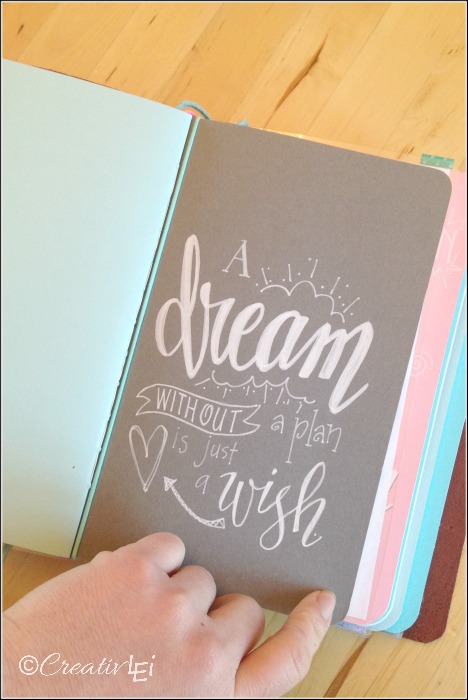 A
dream
WITHOUT a plan
is just
a wish.
©CreativLEi